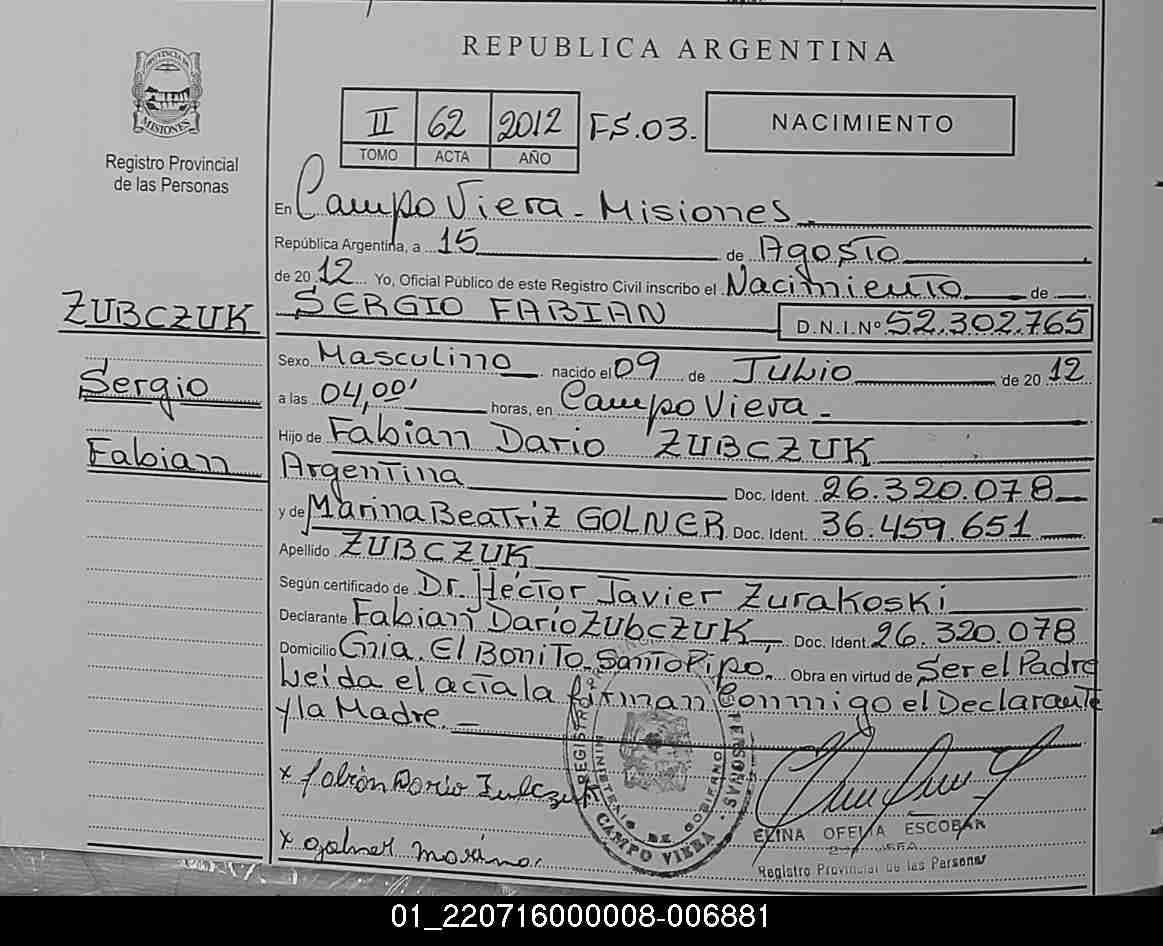 REPUBLICA ARGENTINA
PROVINCIA DE
MISIONES
Registro Provincial
de las Personas
II 62 2012 FS.03. NACIMIENTO
TOMO ACTA AÑO
En Campo Viera - Misiones
República Argentina, a 15 de Agosto
de 2012 Yo, Oficial Público de este Registro Civil inscribo el Nacimiento de
ZUBCZUK
SERGIO FABIAN D.N.I.Nº 52.302.765
Sexo Masculino nacido el 09 de Julio de 2012
Sergio
a las 04,00' horas, en Campo Viera -
Hijo de Fabian Dario ZUBCZUK
Fabian
Argentina Doc. Ident. 26.320.078
y de Marina Beatriz GOLNER Doc. Ident. 36.459.651
Apellido ZUBCZUK
Según certificado de Dr. Héctor Javier Zurakoski
Declarante Fabian Dario ZUbCZUK, Doc. Ident. 26.320.078
Domicilio Cnia. El Bonito, Santo Pipo. Obra en virtud de Ser el Padre
Leida el acta la firman Conmigo el Declarante
y la Madre. -
x Fabión Dario Zubczuk
x golner marina.
REGISTRO PERSONAS
MINISTERIO DE GOBIERNO
CAMPO VIERA
ELINA OFELIA ESCOBAR
Registro Provincial de las Personas
01_220716000008-006881